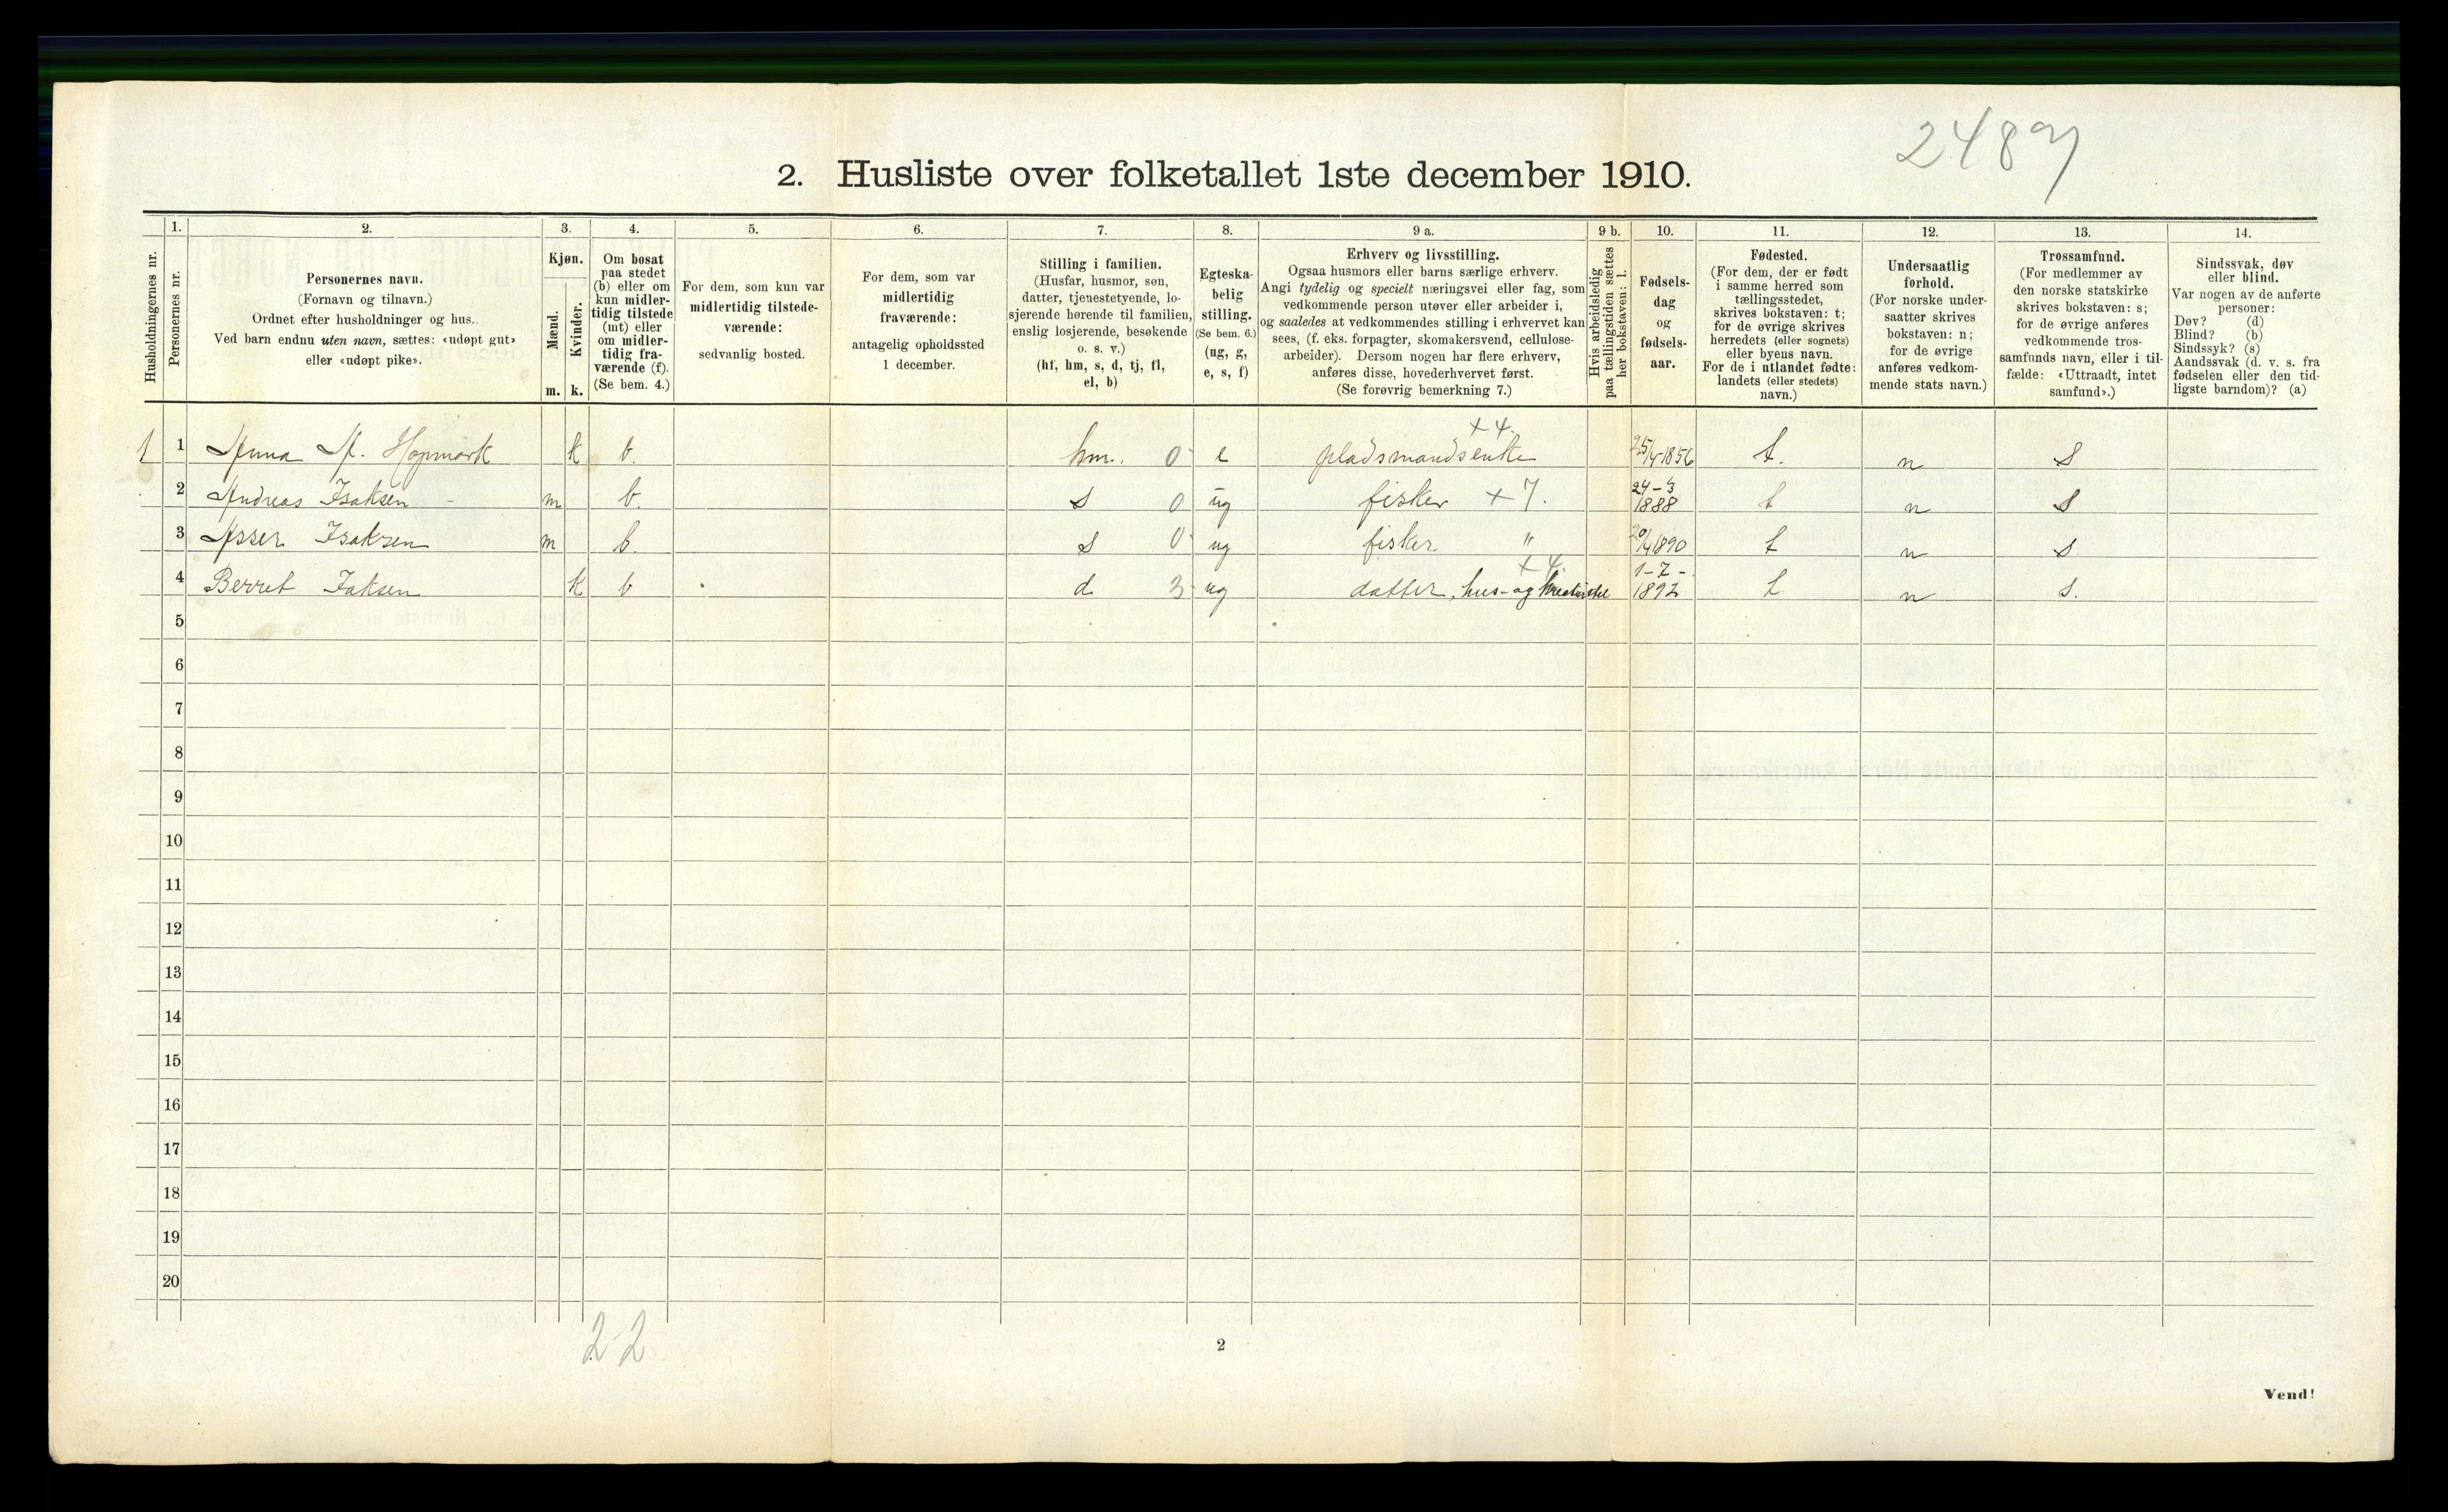 2489
2. Husliste over folketallet 1ste december 1910.
Husholdningernes nr.
1.
Personernes nr.
2.
Personernes navn.
(Fornavn og tilnavn.)
Ordnet efter husholdninger og hus..
Ved barn endnu uten navn, sættes: «udøpt gut»
eller «udøpt pike».
3.
Kjøn.
Mænd.
Kvinder.
m. k.
4.
Om bosat
paa stedet
(b) eller om
kun midler-
tidig tilstede
(mt) eller
om midler-
tidig fra-
værende (f).
(Se bem. 4.)
5.
For dem, som kun var
midlertidig tilstede-
værende:
sedvanlig bosted.
6.
For dem, som var
midlertidig
fraværende:
antagelig opholdssted
1 december.
7.
Stilling i familien.
(Husfar, husmor, søn,
datter, tjenestetyende, lo-
sjerende hørende til familien,
enslig losjerende, besøkende
o. s. v.)
(hf, hm, s, d, tj, fl,
el, b)
8.
Egteska-
belig
stilling.
(Se bem. 6.)
(ug, g,
e, s, f)
9 a.
Erhverv og livsstilling.
Ogsaa husmors eller barns særlige erhverv.
Angi tydelig og specielt næringsvei eller fag, som
vedkommende person utøver eller arbeider i,
og saaledes at vedkommendes stilling i erhvervet kan
sees, (f. eks. forpagter, skomakersvend, cellulose-
arbeider). Dersom nogen har flere erhverv,
anføres disse, hovederhvervet først.
(Se forøvrig bemerkning 7.)
9 b.
Hvis arbeidsledig
paa tællingstiden sættes
her bokstaven: l.
10.
Fødsels-
dag
og
fødsels-
aar.
11.
Fødested.
(For dem, der er født
i samme herred som
tællingsstedet,
skrives bokstaven: t;
for de øvrige skrives
herredets (eller sognets)
eller byens navn.
For de i utlandet fødte:
landets (eller stedets)
navn.)
12.
Undersaatlig
forhold.
(For norske under-
saatter skrives
bokstaven: n;
for de øvrige
anføres vedkom-
mende stats navn.)
13.
Trossamfund.
(For medlemmer av
den norske statskirke
skrives bokstaven: s;
for de øvrige anføres
vedkommende tros-
samfunds navn, eller i til-
fælde: «Uttraadt, intet
samfund».)
14.
Sindssvak, døv
eller blind.
Var nogen av de anførte
personer:
Døv? (d)
Blind? (b)
Sindssyk? (s)
Aandssvak (d. v. s. fra
fødselen eller den tid-
ligste barndom)? (a)
1 1 Anna A. Hopmark k b. hm. 0 e pladsmandsenke +4. 25/4-1856 t. n s
2 Andreas Isaksen - m b. s 0 ug fisker +7. 24-3 1888 t n s
3 Asser Isaksen m b. s 0 ug fisker " 1890 t n s
4 Berret Isaksen k b d 3 ug datter, hus- og +4. 1-7- 1892 t n s.
5
6
7
8
9
10
11
12
13
14
15
16
17
18
19
20
2-2
2
Vend!